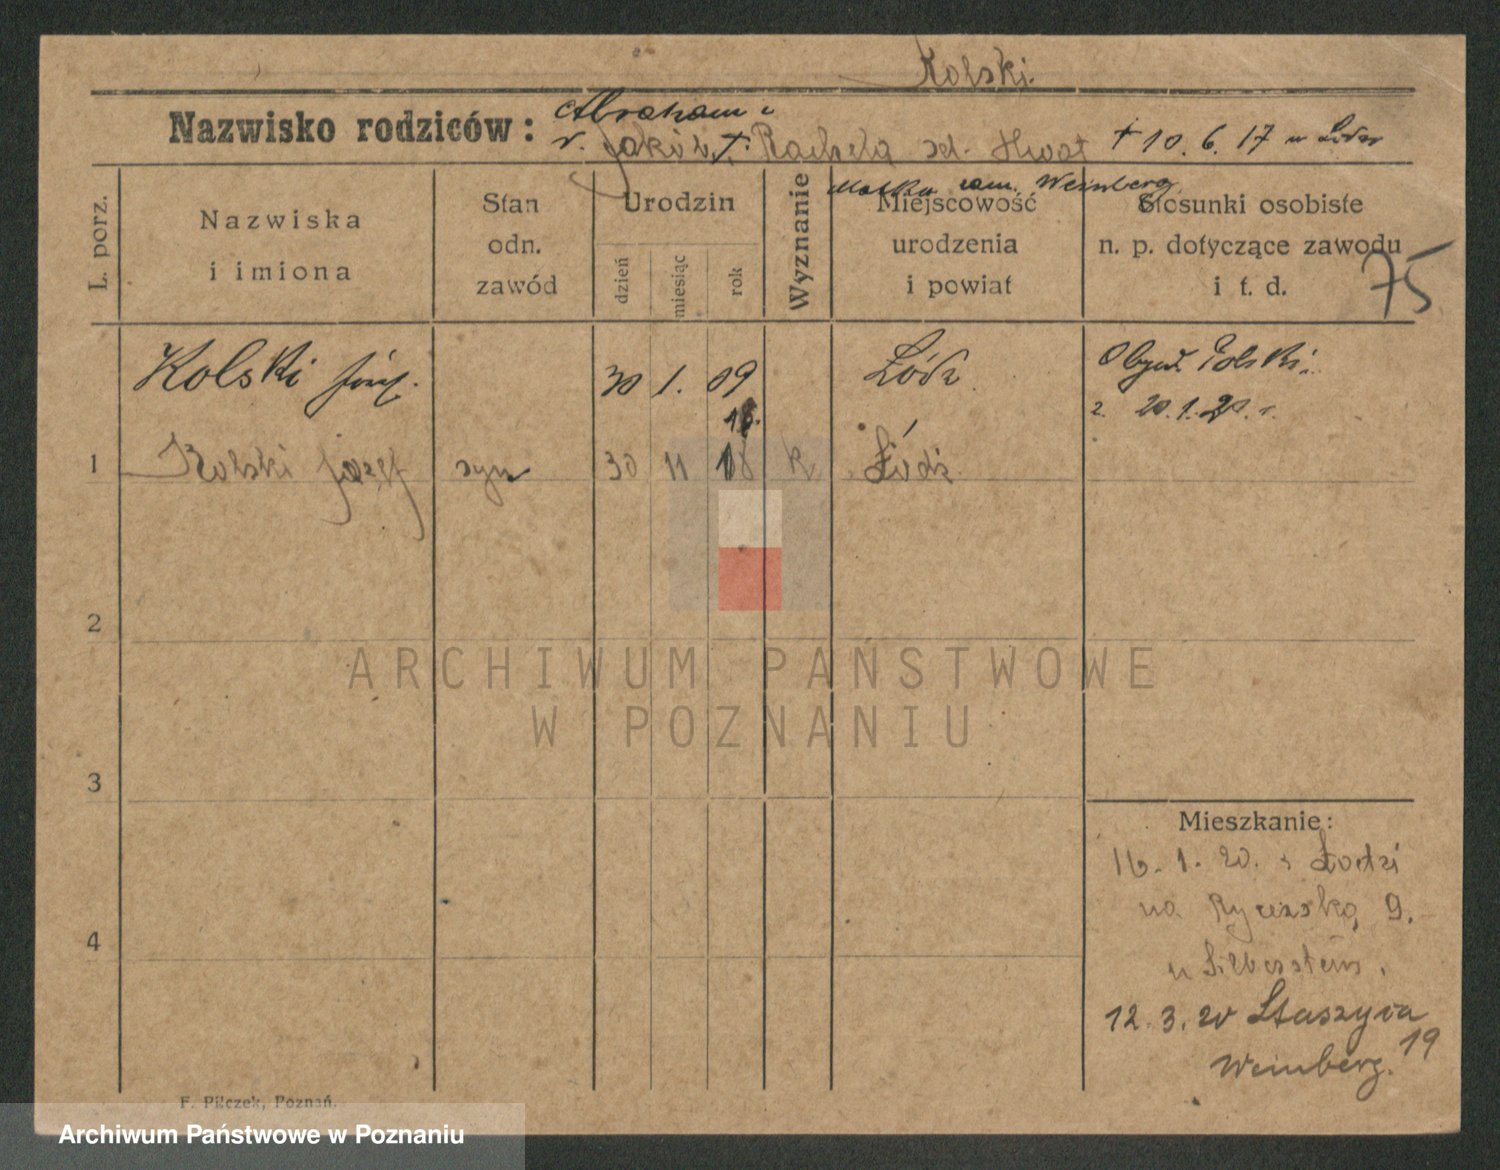 Kolski.
Nazwisko rodziców: Abraham i
v. Jakób, †. Rachela † 10. 6. 17 w
Matka zam. Weinberg.
L. porz.
Nazwiska
i imiona
Stan
odn.
zawód
Urodzin
dzień
miesiąc
rok
Wyznanie
Miejscowość
urodzenia
i powiat
Stosunki osobiste
n. p. dotyczące zawodu
i t. d.
75
Kolski Józef. 30 1. 09 Łódz Obyw. Polski.
18. z. 20.1.20. r.
1 Kolski Józef syn 30 11 08 Łódź
2
3
4
Mieszkanie:
16. 1. 20. z Łodzi
na Rycerską 9.
u Silberstein.
12. 3. 20 Staszyca
19
Weinberg.
F. Pilczek, Poznań.
ARCHIWUM PAŃSTWOWE
W POZNANIU
Archiwum Państwowe w Poznaniu